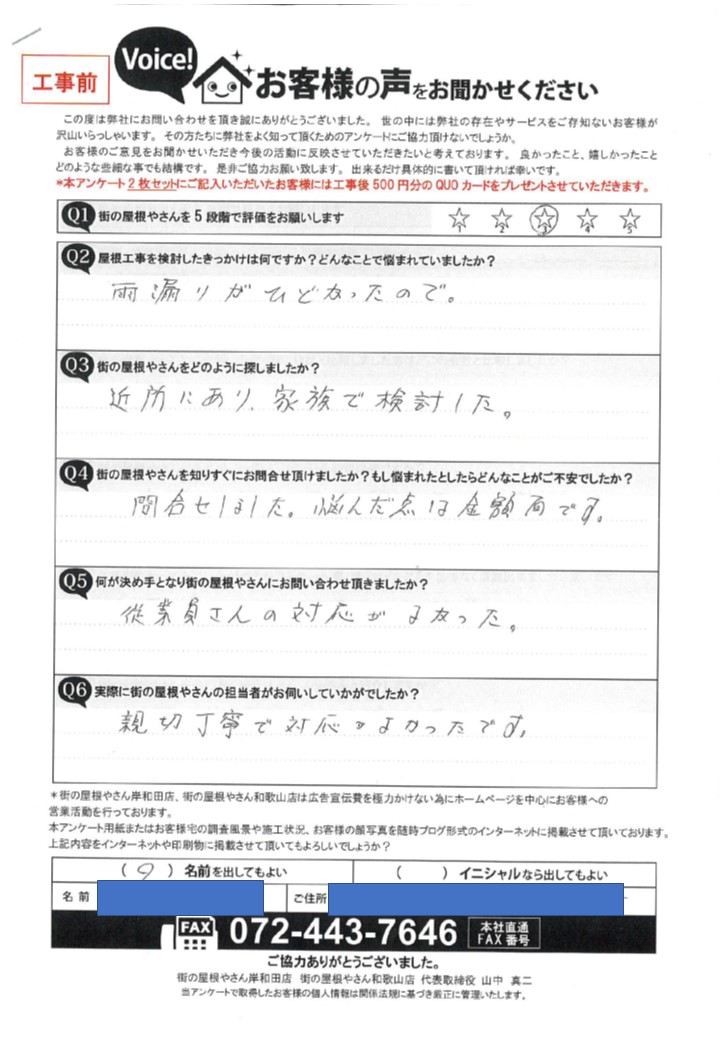 工事前
Voice!
お客様の声をお聞かせください
この度は弊社にお問い合わせを頂き誠にありがとうございました。 世の中には弊社の存在やサービスをご存知ないお客様が
沢山いらっしゃいます。 その方たちに弊社をよく知って頂くためのアンケートにご協力頂けないでしょうか。
お客様のご意見をお聞かせいただき今後の活動に反映させていただきたいと考えております。 良かったこと、嬉しかったこと
どのような些細な事でも結構です。 是非ご協力お願い致します。 出来るだけ具体的に書いて頂ければ幸いです。
*本アンケート2枚セットにご記入いただいたお客様には工事後500円分のQUOカードをプレゼントさせていただきます。
Q1 街の屋根やさんを5段階で評価をお願いします 1 2 3 4 5
Q2 屋根工事を検討したきっかけは何ですか?どんなことで悩まれていましたか?
雨漏りがひどかったので。
Q3 街の屋根やさんをどのように探しましたか?
近所にあり、家族で検討した。
Q4 街の屋根やさんを知りすぐにお問合せ頂けましたか?もし悩まれたとしたらどんなことがご不安でしたか?
問合せしました。悩んだ点は金額面です。
Q5 何が決め手となり街の屋根やさんにお問い合わせ頂きましたか?
従業員さんの対応がよかった。
Q6 実際に街の屋根やさんの担当者がお伺いしていかがでしたか?
親切丁寧で対応がよかったです。
*街の屋根やさん岸和田店、街の屋根やさん和歌山店は広告宣伝費を極力かけない為にホームページを中心にお客様への
営業活動を行っております。
本アンケート用紙またはお客様宅の調査風景や施工状況、お客様の顔写真を随時ブログ形式のインターネットに掲載させて頂いております。
上記内容をインターネットや印刷物に掲載させて頂いてもよろしいでしょうか?
(○)名前を出してもよい ( )イニシャルなら出してもよい
名前 ご住所
FAX 072-443-7646 本社直通
FAX番号
ご協力ありがとうございました。
街の屋根やさん岸和田店 街の屋根やさん和歌山店 代表取締役 山中 真二
当アンケートで取得したお客様の個人情報は関係法規に基づき厳正に管理いたします。